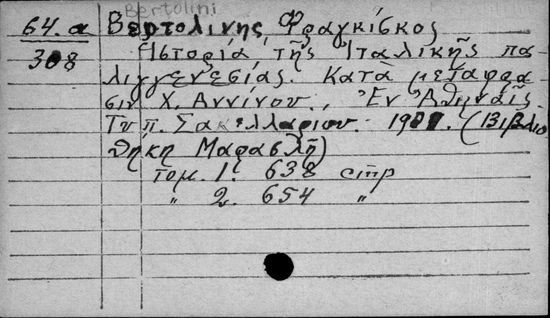 Bertolini
64.α Βερτολίνης, Φραγκίσκος
308 Ἱστορία τῆς Ἰταλικῆς πα
λιγγενεσίας. Κατὰ μετάφρα
σιν Χ. Ἀννίνου., Ἐν Ἀθήναις.
Τυπ. Σακελλαρίου. (Βιβλιο
θήκη Μαρασλῆ)
τομ. 1. 638 стр
" 2. 654 "